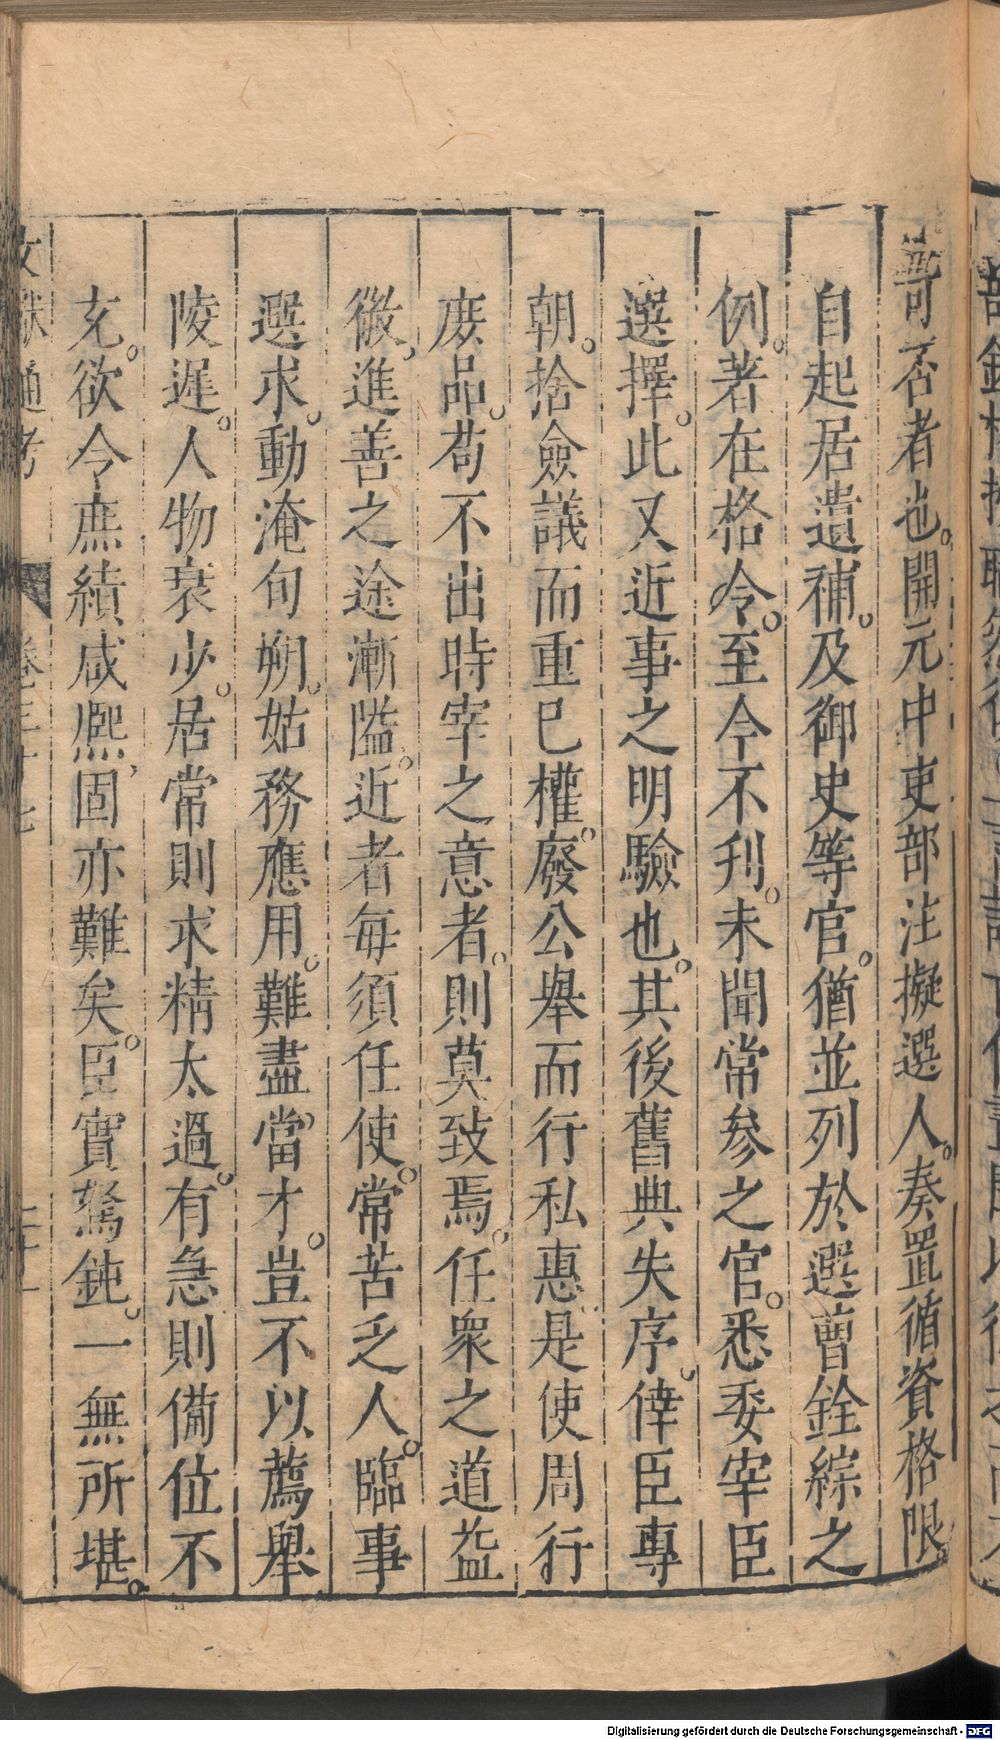 可否者也。開元中吏部注擬選人。奏置循資格限
自起居遺補。及御史等官。猶並列於選曹銓綜之
例。著在格令。至今不刊。未聞常參之官。悉委宰臣
選擇。此又近事之明驗也。其後舊典失序。倖臣專
朝。捨僉議而重已權。廢公舉而行私惠。是使周行
庶品。苟不出時宰之意者。則莫致焉。任衆之道益
微。進善之途漸隘。近者每須任使。常苦乏人。臨事
選求。動淹旬朔。姑務應用。難盡當才。豈不以薦舉
陵遲。人物衰少。居常則求精太過。有急則備位不
充。欲令庶績咸熈。固亦難矣。臣實駑鈍。一無所堪。
文獻通考 卷三十七 二十一
Digitalisierung gefördert durch die Deutsche Forschungsgemeinschaft - DFG